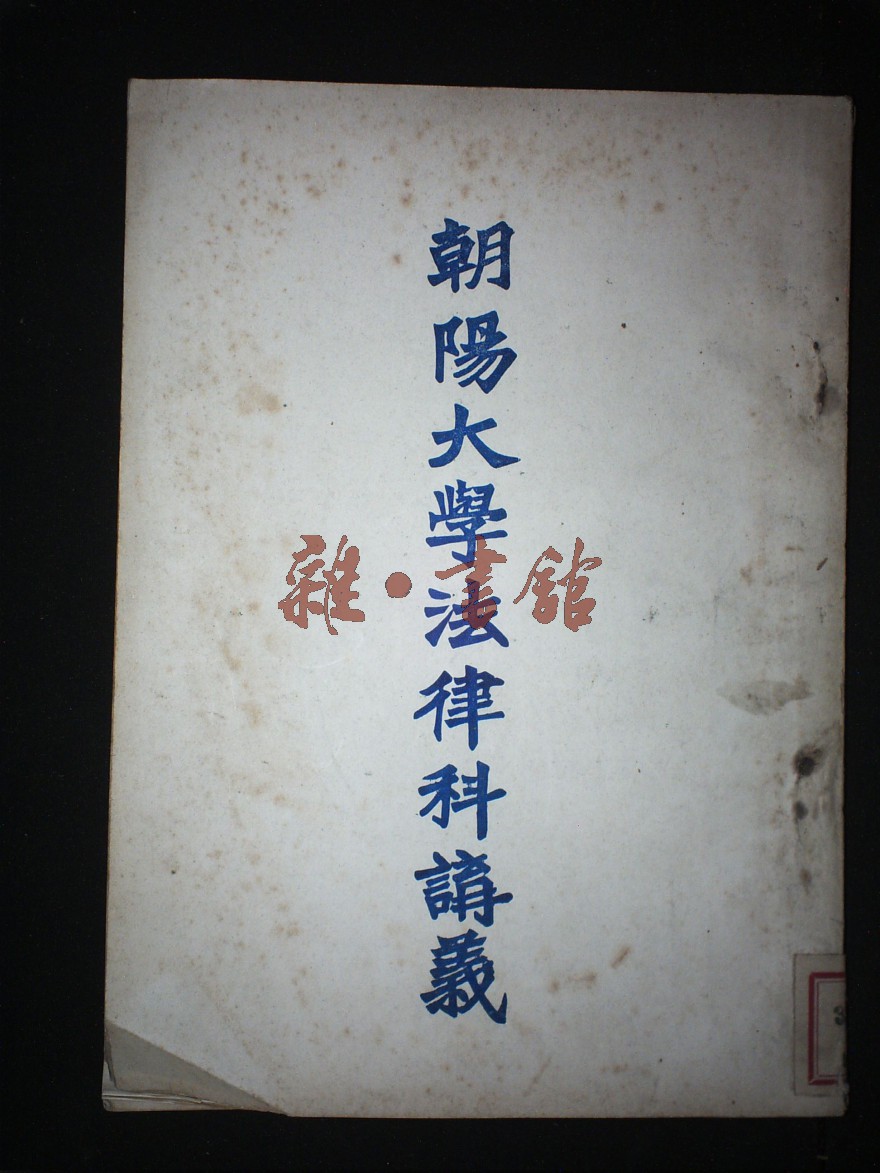 朝陽大學法律科講義
雜·書館
3